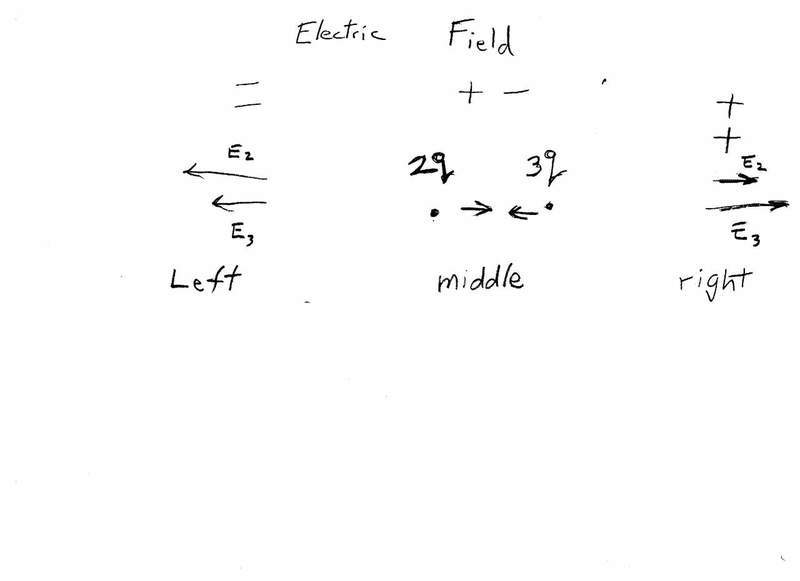 Electric Field
= + - +
+
E2 2q 3q E2
E3 E3
Left middle right